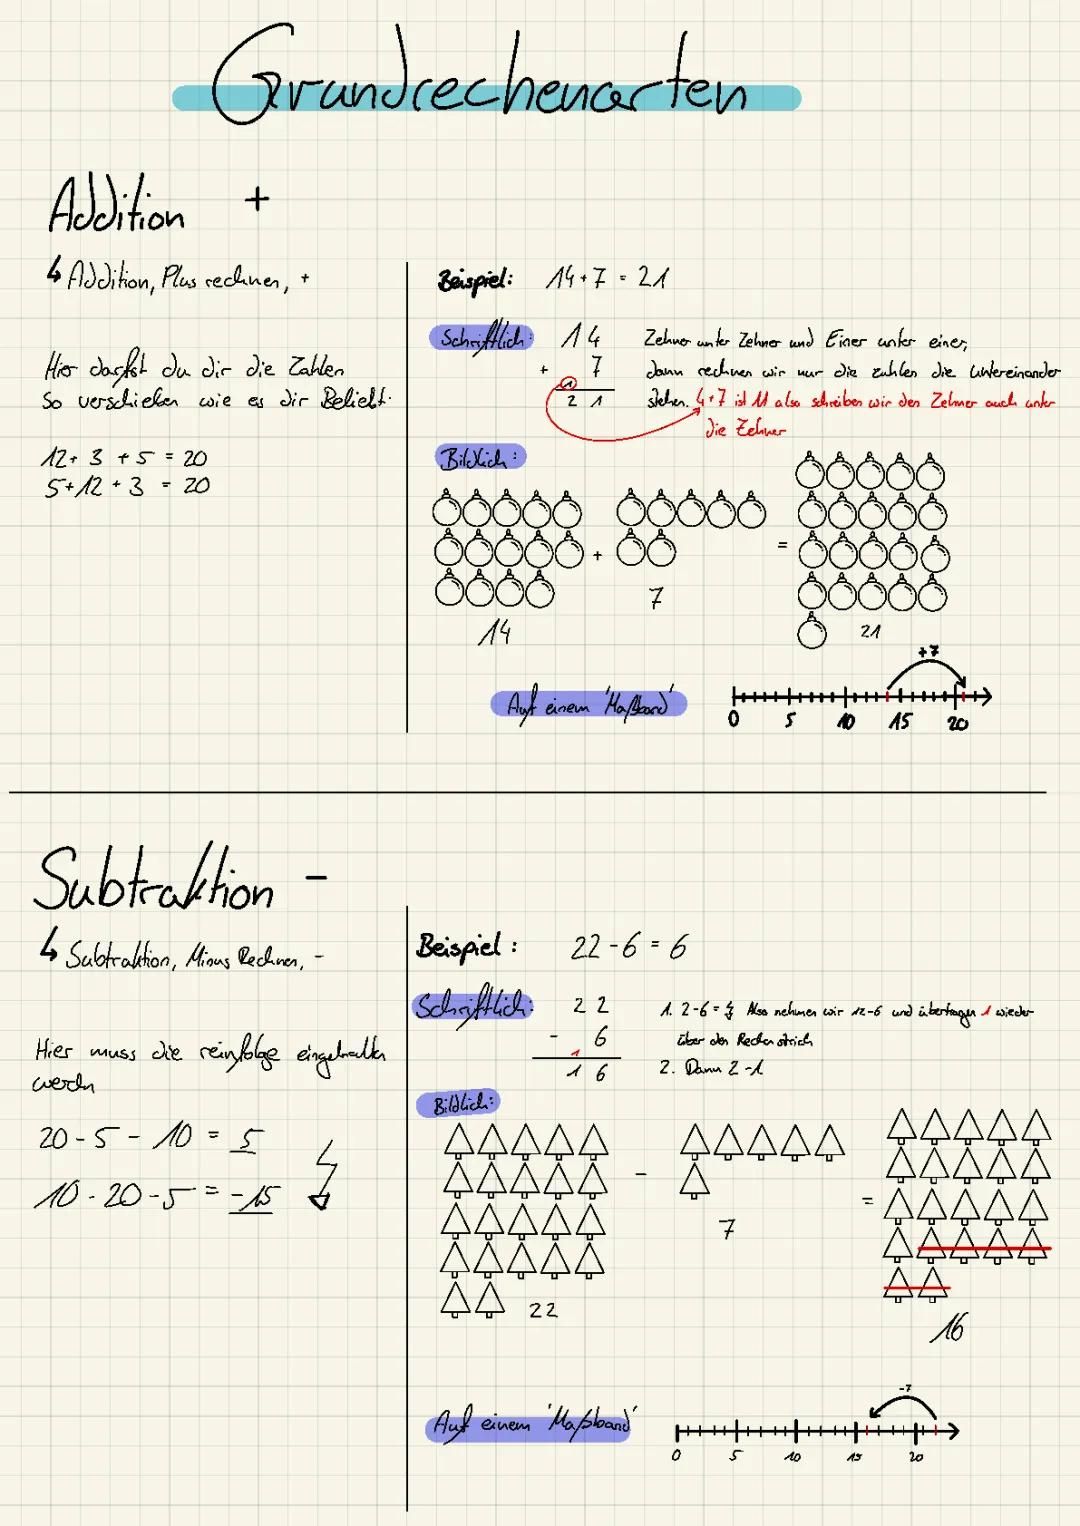 Grundrechenarten
Addition +
↳ Addition, Plus rechnen, +
Hier darfst du dir die Zahlen
so verschieben wie es dir Beliebt.
12 + 3 + 5 = 20
5 + 12 + 3 = 20
Beispiel: 14 + 7 = 21
Schriftlich:
14
+ 7
1
2 1
Zehner unter Zehner und Einer unter einer,
dann rechnen wir nur die zahlen die untereinander
stehen. 4+7 ist 11 also schreiben wir den Zehner auch unter
die Zehner
Bildlich:
14
+
7
=
21
Auf einem 'Maßband'
+7
0 5 10 15 20
Subtraktion -
↳ Subtraktion, Minus Rechnen, -
Hier muss die reinfolge eingehalten
werdn
20 - 5 - 10 = 5
10 - 20 - 5 = -15
Beispiel: 22 - 6 = 6
Schriftlich:
2 2
- 6
1
1 6
1. 2-6 = ↯ Also nehmen wir 12-6 und übertragen 1 wieder
über den Rechenstrich
2. Dann 2-1
Bildlich:
22
-
7
=
16
Auf einem 'Maßband'
-7
0 5 10 15 20